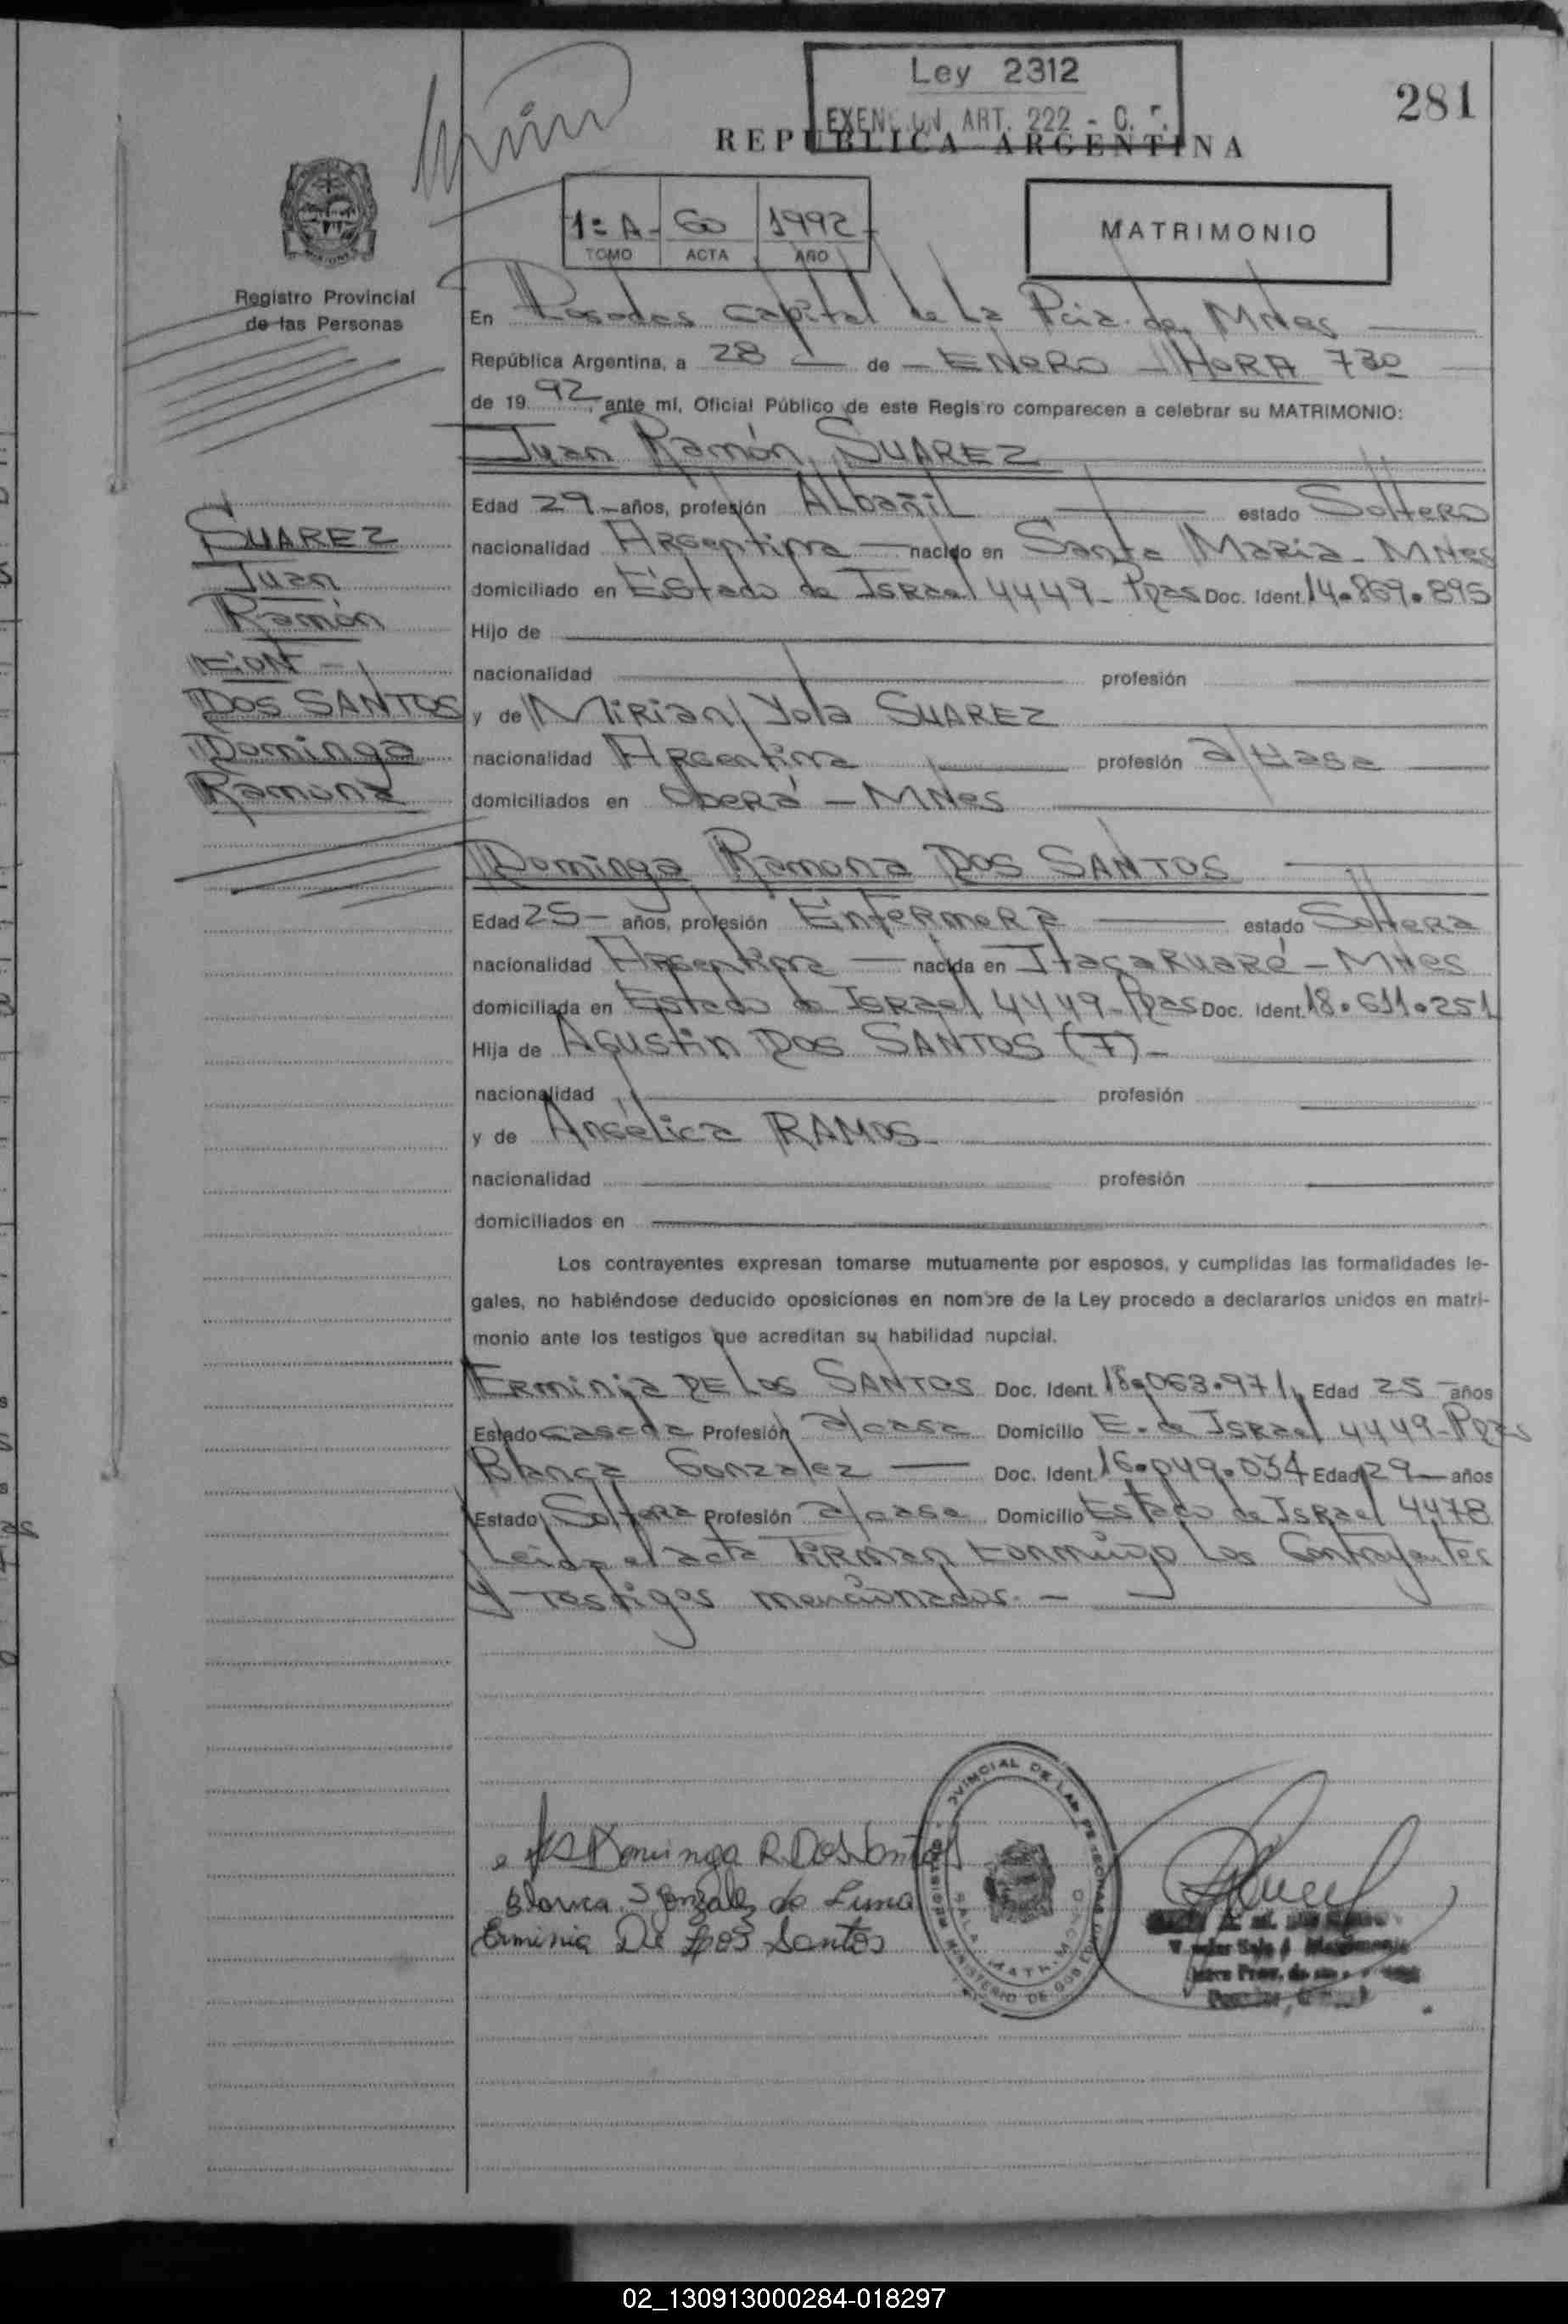 Ley 2312
EXENCION ART. 222 - C. F.
281
REPUBLICA ARGENTINA
1º A- 60 1992
TOMO ACTA AÑO
MATRIMONIO
Registro Provincial
de las Personas
En Posadas capital de La Pcia. de Mnes
República Argentina, a 28 de ENERO HORA 730
de 1992, ante mí, Oficial Público de este Registro comparecen a celebrar su MATRIMONIO:
Juan Ramón SUAREZ
Edad 29 años, profesión Albañil estado Soltero
nacionalidad Argentina nacido en Santa Maria - MNes
domiciliado en Estado de Israel 4449 - Pdas Doc. Ident. 14.869.895
Hijo de
nacionalidad profesión
y de Mirian Yola SUAREZ
nacionalidad Argentina profesión a/casa
domiciliados en Oberá - MNes
SUAREZ
Juan
Ramón
CON -
DOS SANTOS
Dominga
Ramona
Dominga Ramona DOS SANTOS
Edad 25 - años, profesión Enfermera estado Soltera
nacionalidad Argentina nacida en Itacaruaré - MNes
domiciliada en Estado de Israel 4449 - Pdas Doc. Ident. 18.611.251
Hija de Agustin DOS SANTOS (F) -
nacionalidad profesión
y de Angélica RAMOS
nacionalidad profesión
domiciliados en
Los contrayentes expresan tomarse mutuamente por esposos, y cumplidas las formalidades le-
gales, no habiéndose deducido oposiciones en nombre de la Ley procedo a declararlos unidos en matri-
monio ante los testigos que acreditan su habilidad nupcial.
Erminia DE Los SANTOS Doc. Ident. 18.063.971 Edad 25 años
Estado casada Profesión a/casa Domicilio E. de Israel 4449 - Pdas
Blanca Gonzalez Doc. Ident. 16.049.034 Edad 29 años
Estado Soltera Profesión a/casa Domicilio Estado de Israel 4478
Leida el acta firman conmigo los Contrayentes
y testigos mencionados. -
Dominga R. Dos Santos
Blanca Gonzalez de Luna
Erminia De Los Santos
PROVINCIAL DE LAS PERSONAS
MINISTERIO DE GOB
SALA MATRIMONIO
02_130913000284-018297